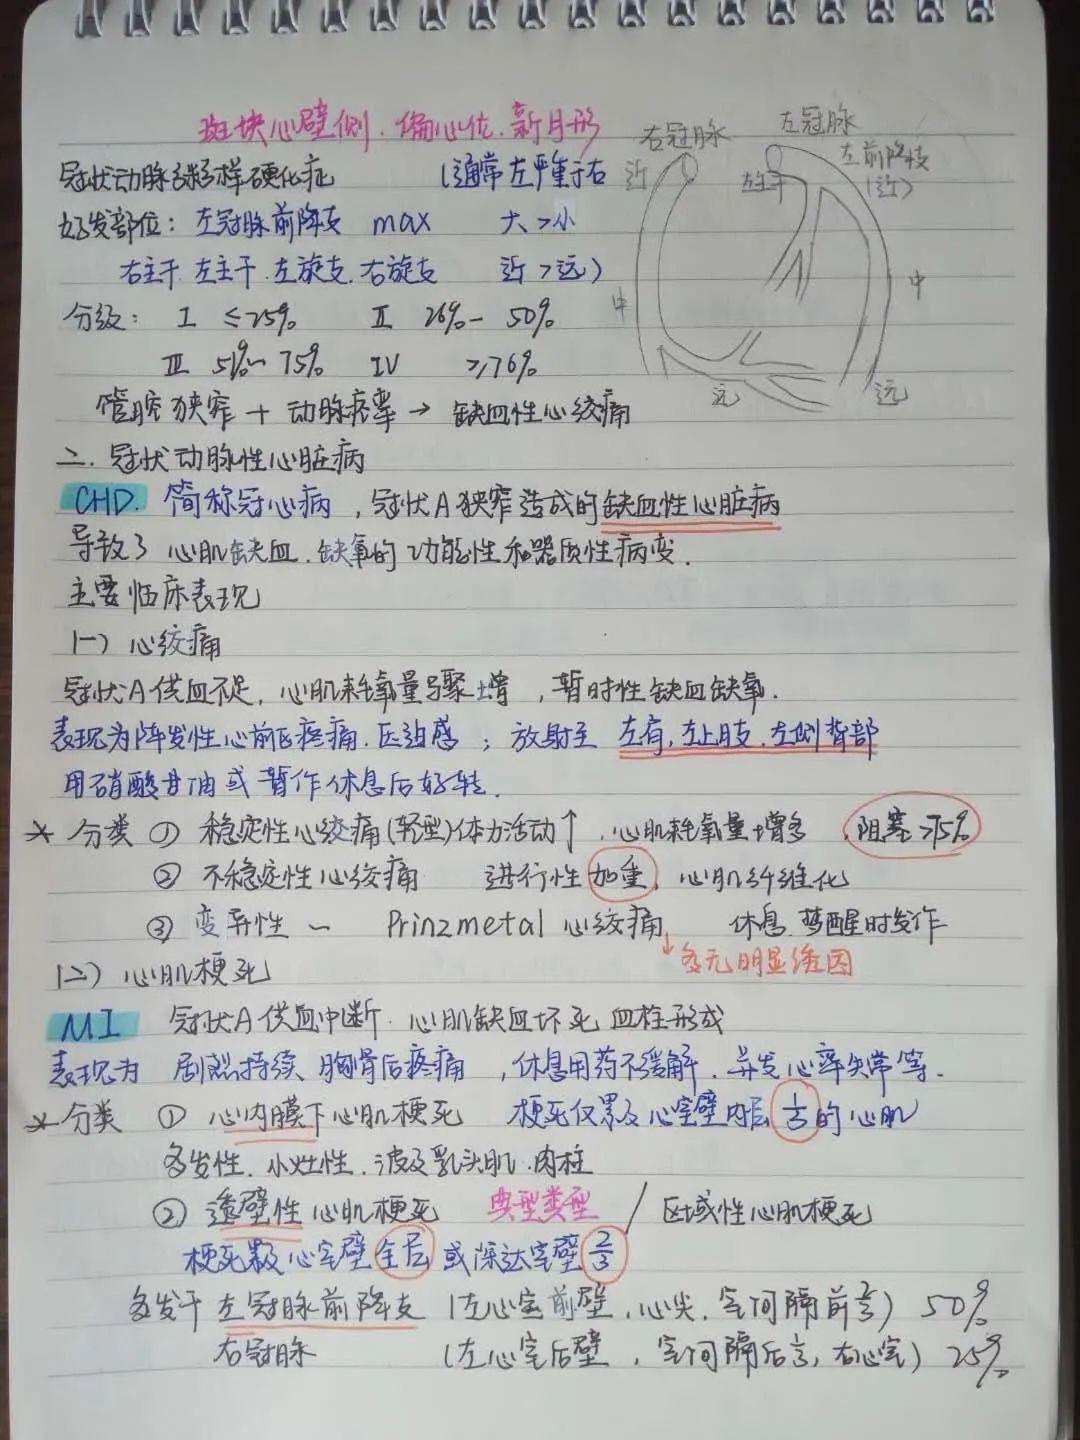 斑块心壁侧.偏心位.新月形
右冠脉
左冠脉
近
左主干
左前降支
(近)
中
中
远
远
冠状动脉粥样硬化症 (通常左严重于右
好发部位: 左冠脉前降支 max 大>小
右主干.左主干.左旋支.右旋支 近>远)
分级: I ≤25% II 26%- 50%
III 51%~75% IV ≥76%
管腔狭窄 + 动脉痉挛 → 缺血性心绞痛
二. 冠状动脉性心脏病
CHD. 简称冠心病, 冠状A狭窄造成的缺血性心脏病
导致了 心肌缺血.缺氧的功能性和器质性病变.
主要临床表现
(一) 心绞痛
冠状A供血不足, 心肌耗氧量骤增, 暂时性缺血缺氧.
表现为阵发性心前区疼痛.压迫感; 放射至 左肩,左上肢.左侧背部
用硝酸甘油或暂作休息后好转.
* 分类 ① 稳定性心绞痛(轻型)体力活动↑, 心肌耗氧量增多, 阻塞>75%
② 不稳定性心绞痛 进行性加重, 心肌纤维化
③ 变异性 ~ Prinzmetal 心绞痛 休息.梦醒时发作
↓多无明显诱因
(二) 心肌梗死
MI 冠状A供血中断.心肌缺血坏死 血栓形成
表现为 剧烈持续、胸骨后疼痛, 休息用药不缓解. 并发心率失常等.
* 分类 ① 心内膜下心肌梗死 梗死仅累及心室壁内层⅓的心肌
多发性.小灶性.波及乳头肌.肉柱
② 透壁性心肌梗死 典型类型 / 区域性心肌梗死
梗死累及心室壁全层或深达室壁⅔
多发于左冠脉前降支 (左心室前壁,心尖,室间隔前⅔) 50%
右冠脉 (左心室后壁, 室间隔后⅓, 右心室) 25%